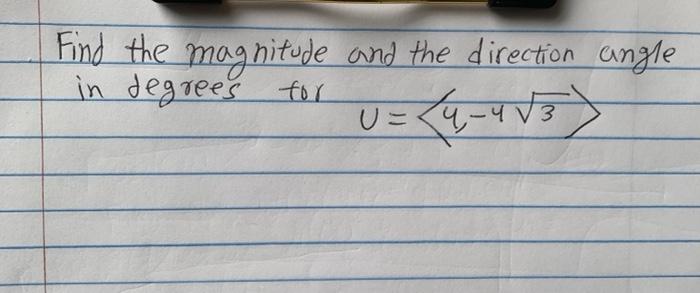 Find the magnitude and the direction angle
in degrees for
U = <4, -4 √3>